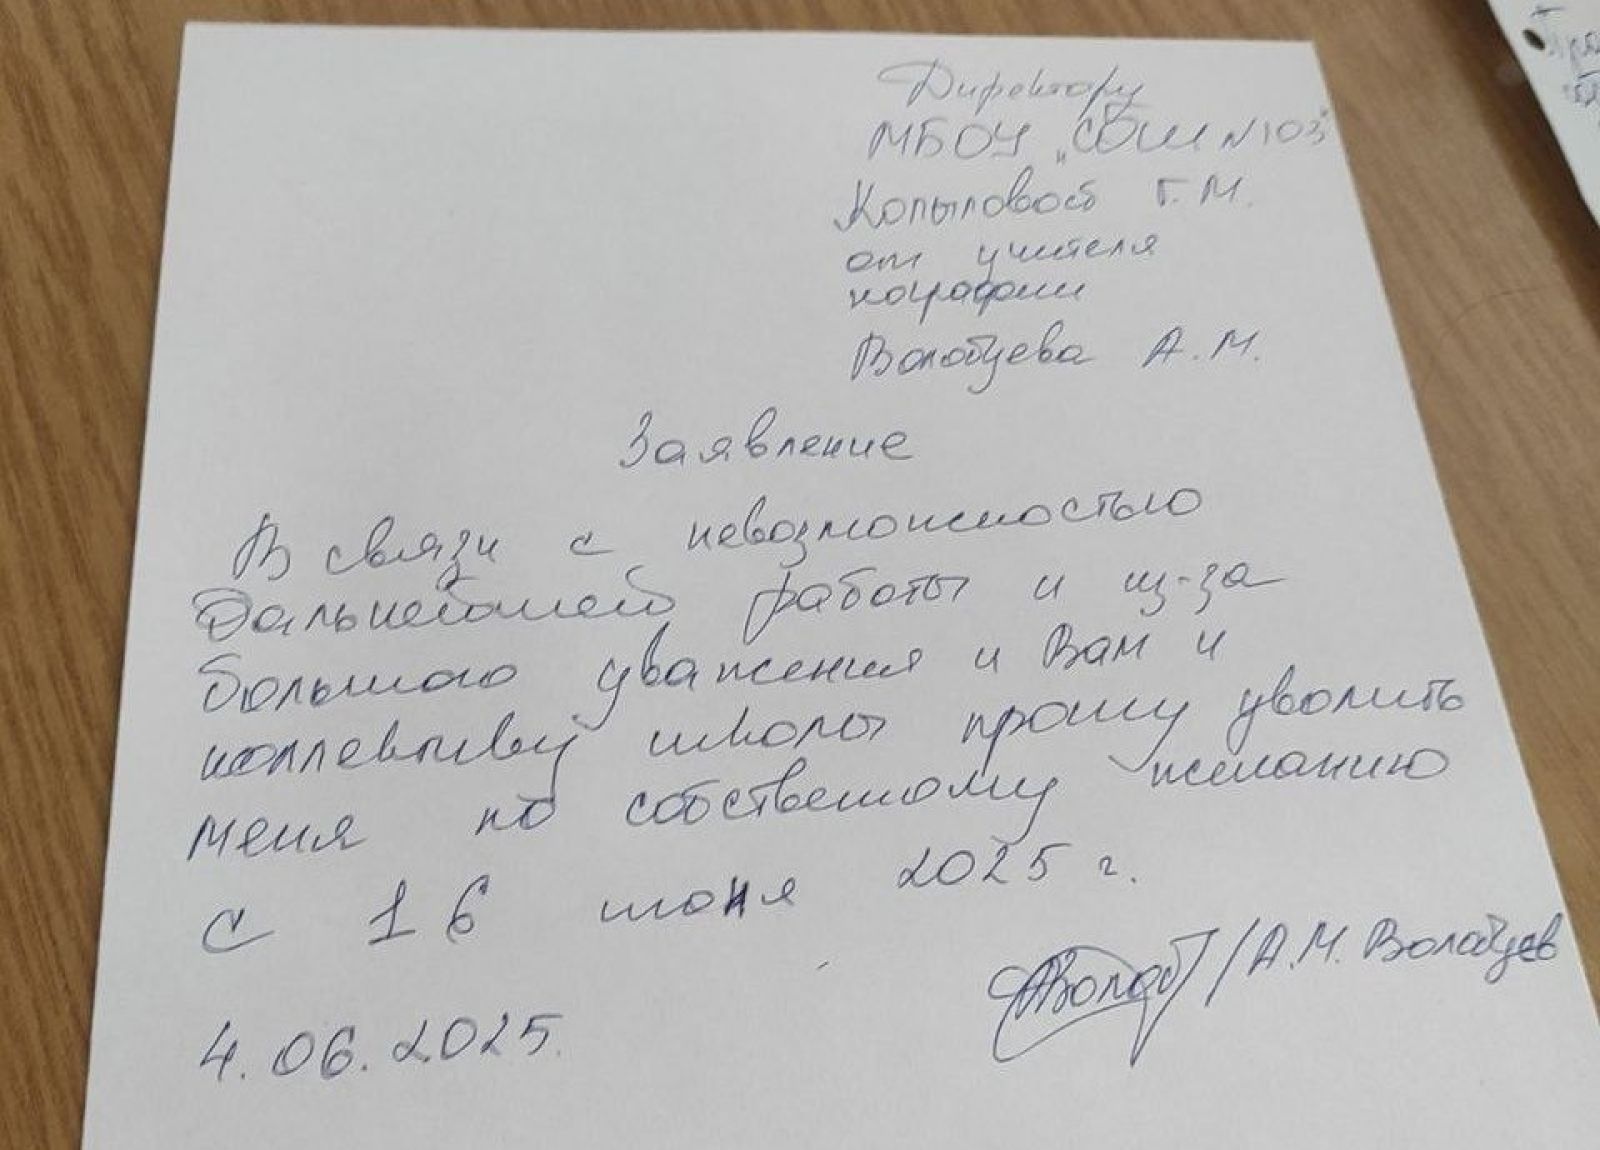 Директору
МБОУ „СОШ №103"
Копыловой Г.М.
от учителя
географии
Волобуева А.М.
Заявление
В связи с невозможностью
дальнейшей работы и из-за
большого уважения к Вам и
коллективу школы прошу уволить
меня по собственному желанию
с 16 июня 2025 г.
4.06.2025. /А.М. Волобуев